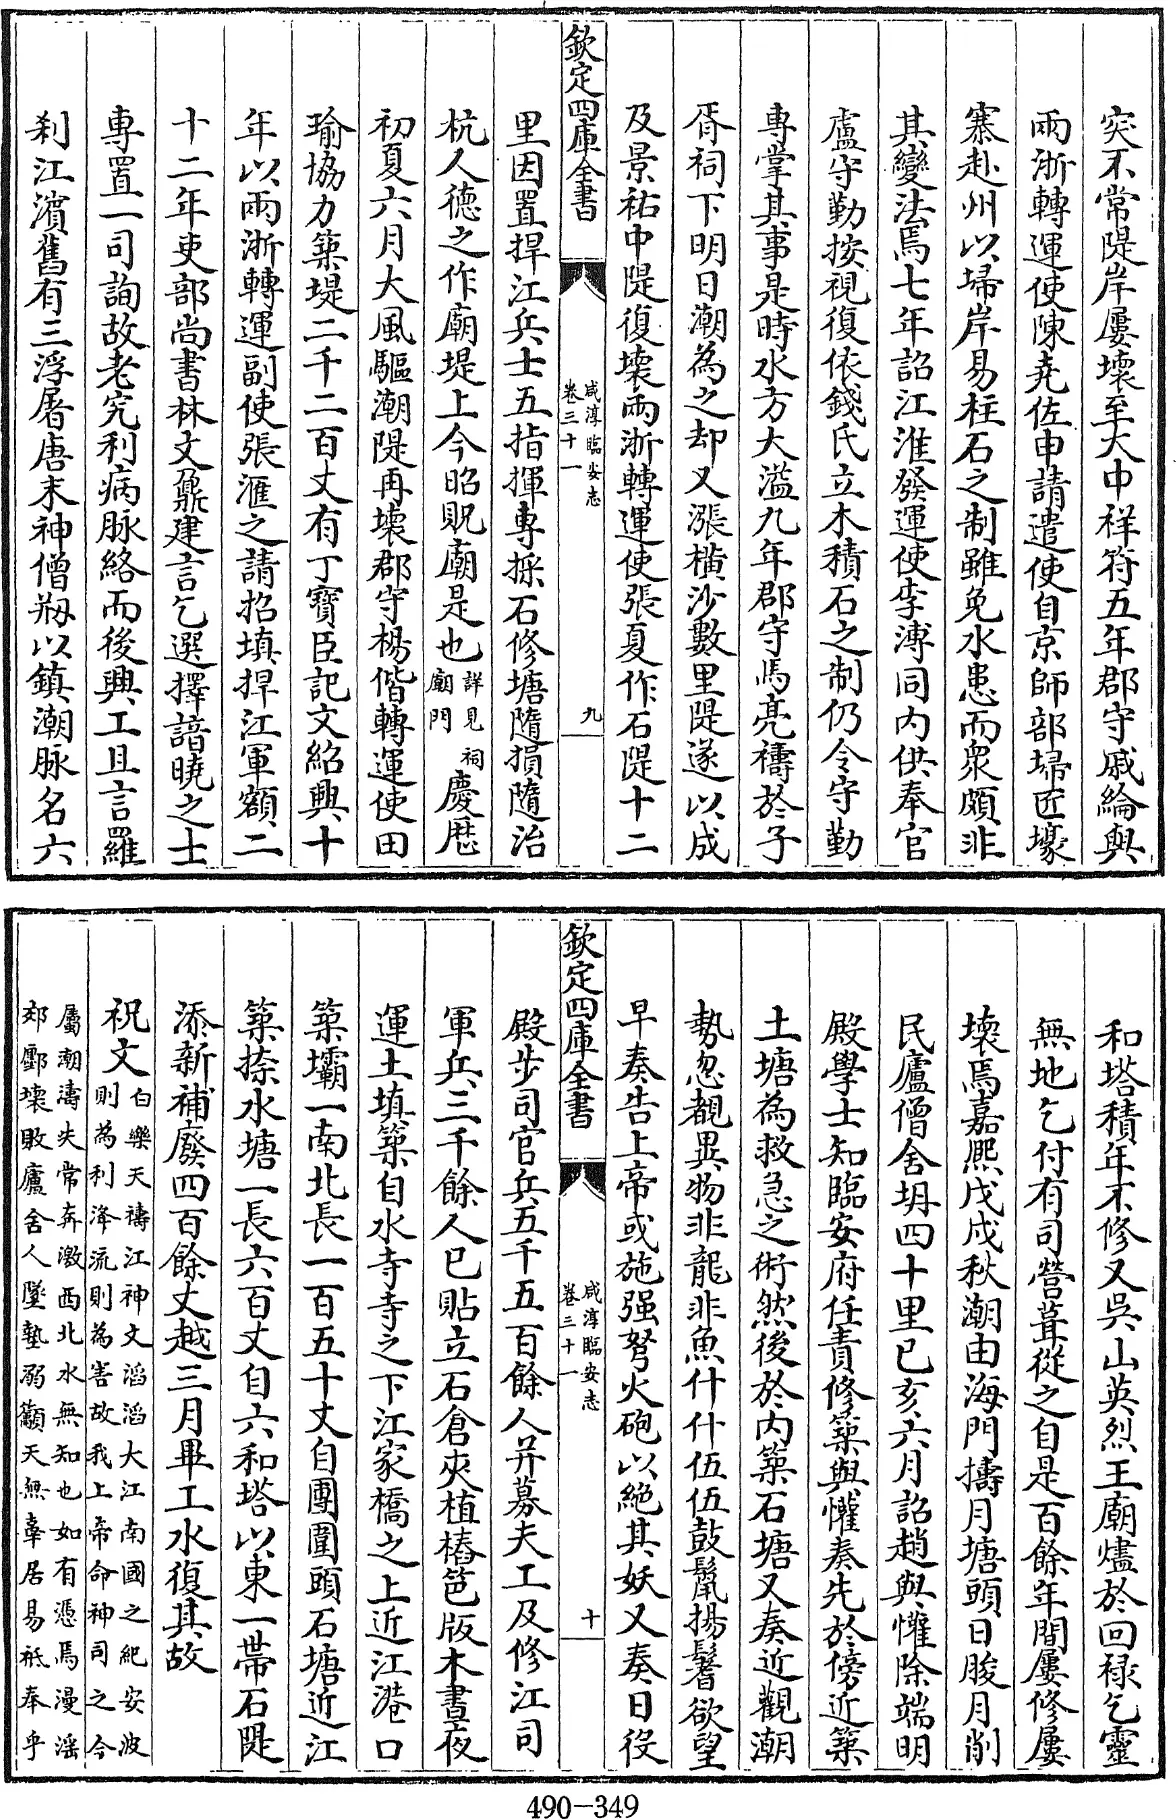 突不常隄岸屢壞至大中祥符五年郡守戚綸與
兩浙轉運使陳堯佐申請遣使自京師部埽匠壕
寨赴州以埽岸易柱石之制雖免水患而衆頗非
其變法焉七年詔江淮發運使李溥同内供奉官
盧守勤按視復依錢氏立木積石之制仍令守勤
專掌其事是時水方大溢九年郡守馬亮禱於子
胥祠下明日潮為之却又漲橫沙數里隄遂以成
及景祐中隄復壞兩浙轉運使張夏作石隄十二
欽定四庫全書
咸淳臨安志
卷三十一
九
里因置捍江兵士五指揮專採石修塘隨損隨治
杭人德之作廟堤上今昭貺廟是也詳見祠廟門慶厯
初夏六月大風驅潮隄再壞郡守楊偕轉運使田
瑜協力築堤二千二百丈有丁寶臣記文紹興十
年以兩浙轉運副使張滙之請招填捍江軍額二
十二年吏部尚書林文鼐建言乞選擇諳曉之士
專置一司詢故老究利病脉絡而後興工且言羅
刹江濱舊有三浮屠唐末神僧剏以鎮潮脉名六
和塔積年不修又吳山英烈王廟燼於回禄乞靈
無地乞付有司營葺從之自是百餘年間屢修屢
壞焉嘉熙戊戌秋潮由海門擣月塘頭日朘月削
民廬僧舍坍四十里已亥六月詔趙與懽除端明
殿學士知臨安府任責修築與懽奏先於傍近築
土塘為救急之術然後於内築石塘又奏近觀潮
勢忽覩異物非龍非魚什什伍伍鼓鬣揚鬐欲望
早奏告上帝或施强弩火砲以絶其妖又奏日役
欽定四庫全書
咸淳臨安志
卷三十一
十
殿步司官兵五千五百餘人并募夫工及修江司
軍兵三千餘人已貼立石倉夾植樁笆版木晝夜
運土填築自水寺寺之下江家橋之上近江港口
築壩一南北長一百五十丈自團圍頭石塘近江
築捺水塘一長六百丈自六和塔以東一帶石隄
添新補廢四百餘丈越三月畢工水復其故
祝文白樂天禱江神文滔滔大江南國之紀安波
則為利洚流則為害故我上帝命神司之今
屬潮濤失常奔激西北水無知也如有憑焉漫滛
郊鄽壞敗廬舍人墜墊溺籲天無辜居易祇奉乎
490-349